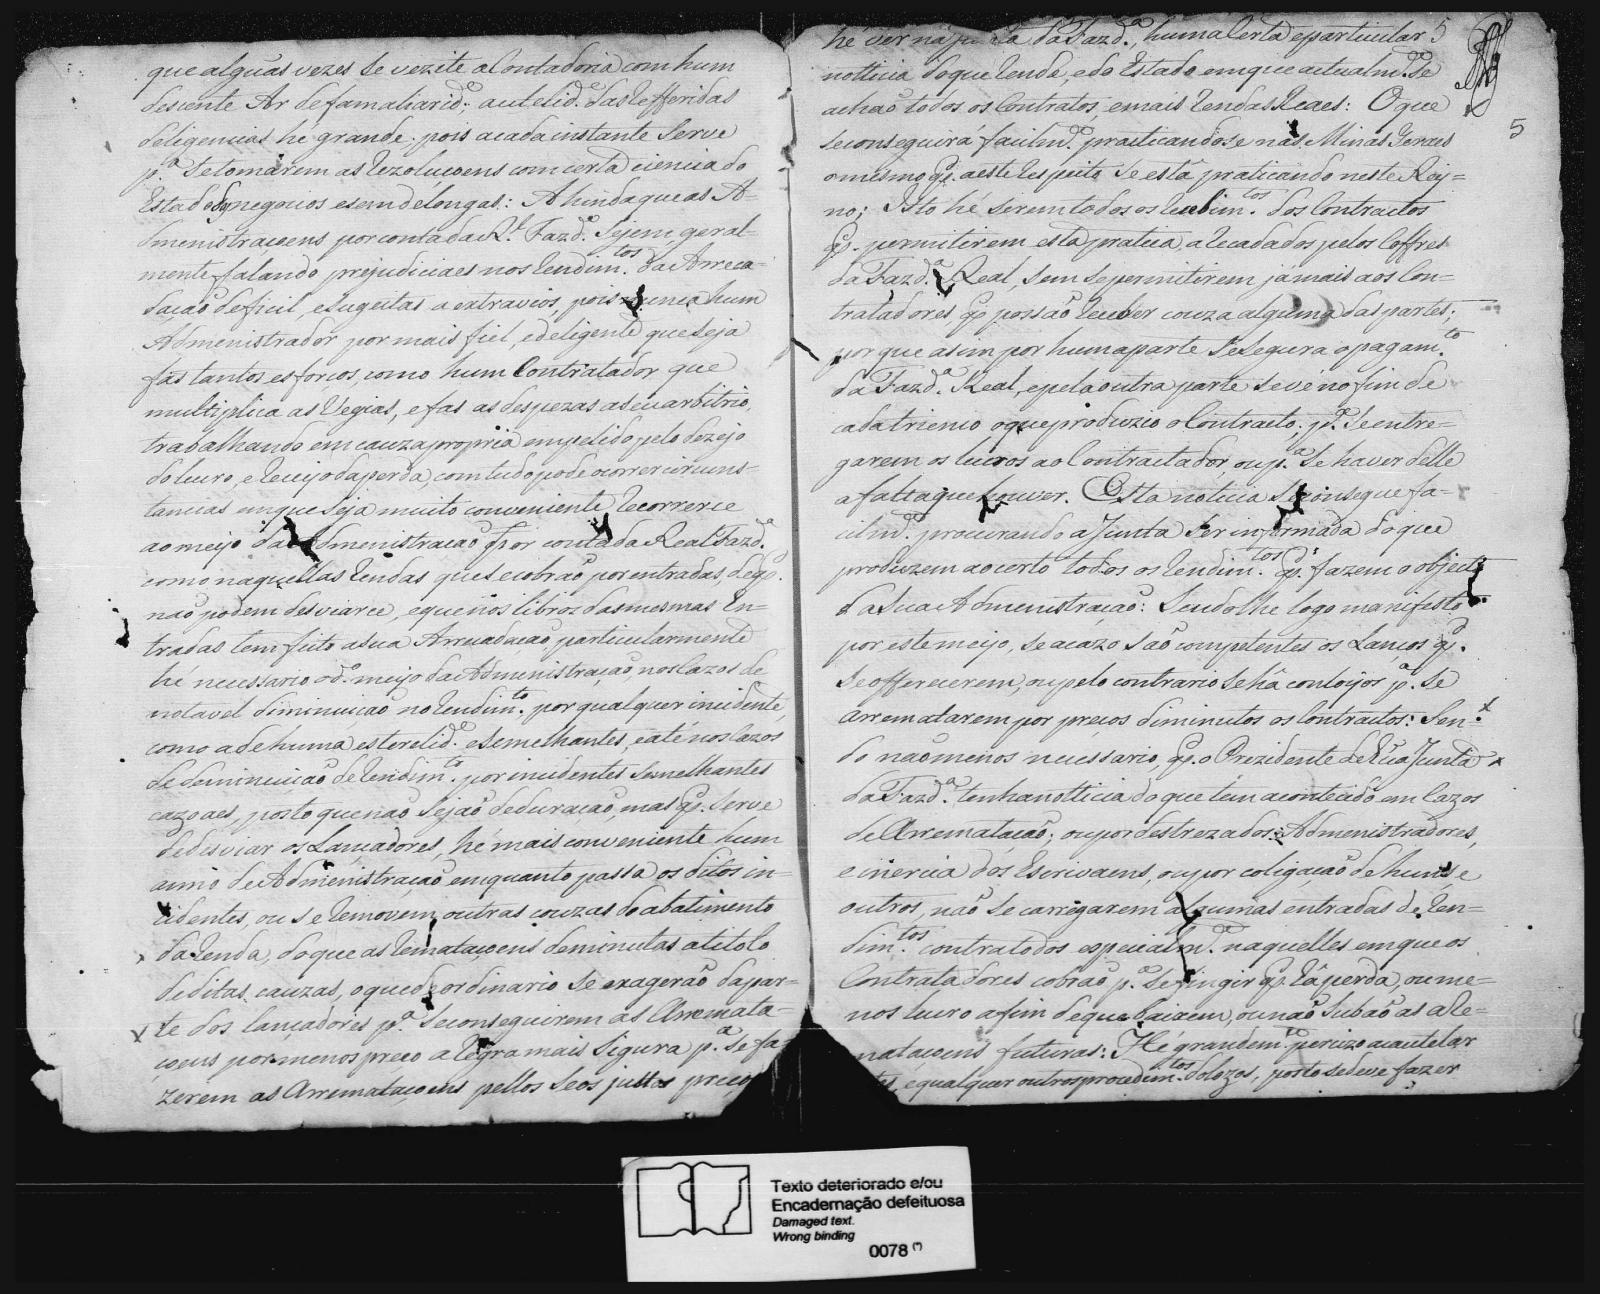 que alguãs vezes se vezite a Contadoria com hum
desente Ar de famaliarid.e; a utelid.e das Refferidas
deligencias hé grande; pois a cada instante serve
p.a se tomarem as Rezoluçoens com certa ciencia do
Estado dos negocios e sem delongas: Ahinda que as A-
dmenistraçoens por conta da R.l Fazd.a Sejem, geral-
mente falando prejudiciaes nos Rendim.tos da Arreca-
daçaõ deficil, e Sugeitas a extravios, pois nunca hum
Admenistrador por mais fiel, e deligente que seja
fás tantos esforços, como hum Contratador que
multiplica as Vegias, e fas as despezas a seu arbitrio,
trabalhando em cauza propria empelido pelo dezejo
do lucro, e Receyo da perda, com tudo pode ocorrer circuns-
tancias em que seja muito conveniente Recorrerce
ao meyo da Admenistracaõ por conta da Real Fazd.a
como naquellas Rendas que se cobraõ por entradas, de q.
naõ podem desviarce, e que nos libros das mesmas En-
tradas tem feito a sua Arrecadacaõ, particularmente
hé necessario o d.o meyo da Admenistraçaõ, nos Cazos de
notavel diminuicaõ no Rendim.to por qualquer incidente,
como a de huma esterelid.e e Semelhantes, e até nos Cazos
de deminuicaõ de Rendim.to por incidentes Semelhantes
cazoaes, posto que naõ sejaõ de duraçaõ, mas q. serve
de desviar os Lançadores, hé mais conveniente hum
anno de Admenistraçaõ, emquanto passa os ditos in-
cidentes, ou se Removem outras couzas do abatimento
da Renda, do que as Remataçoens deminutas a titolo
de ditas cauzas, o que de ordinario se exageraõ da par-
te dos lançadores p.a Se conseguirem as Arremata-
çoens por menos preço a Regra mais Sigura p.a Se fa-
zerem as Arremataçoens pellos Seos justos preços
hé ver na Junta da Fazd.a huma Certa e particular 5
notticia do que Rende, e do Estado em que actualm.te Se
achaõ todos os Contratos, e mais Rendas Reaes: O que
Se conseguirá facilm.te praticandose nas Minas Geraes 5
o mesmo q. a este Respeito Se está praticando neste Rey-
no; Isto hé serem todos os Recebim.tos dos Contractos
q. permitirem esta pratica, aRecadados pelos Coffres
da Fazd.a Real, sem se permitirem jámais aos Con-
tratadores, q. possaõ Receber couza alguma das partes;
porque asim por huma parte Se Segura o pagam.to
da Fazd.a Real, e pela outra parte se vé no fim de
cada trienio o que produzio o Contracto; p.a Se entre-
garem os lucros ao Contractador, ou p.a Se haver delle
a falta que houver. Esta noticia Se consegue fa-
cilm.te procurando a Junta Ser informada do que
produzem ao certo todos os Rendim.tos q. fazem o objecto
da Sua Admenistraçaõ: Sendolhe logo manifesto
por este meyo, se acazo saõ competentes os Lanços q.
Se offerecerem, ou pelo contrario Se há conloyos p.a Se
Arrematarem por preços diminutos os Contractos: Sen-
do naõ menos necessario, q. o Prezidente de Sua Junta
da Fazd.a tenha notticia do que tem acontecido em Cazos
de Arremataçaõ; ou por destreza dos Admenistradores,
e inercia dos Escrivaens, ou por coligaçaõ de huns, e
outros, naõ Se carrégarem algumas entradas de Ren-
dim.tos contratodos especialm.te naquelles em que os
Contratadores cobraõ p.a Se fingir q. há perda, ou me-
nos lucro a fim de que baixem, ou naõ Subaõ as aRe-
mataçoens futuras: Hé grandem.te percizo acautelar
e qualquer outros procedim.tos dolozos, porto se deve fazer
Texto deteriorado e/ou
Encadernação defeituosa
Damaged text.
Wrong binding
0078 (*)